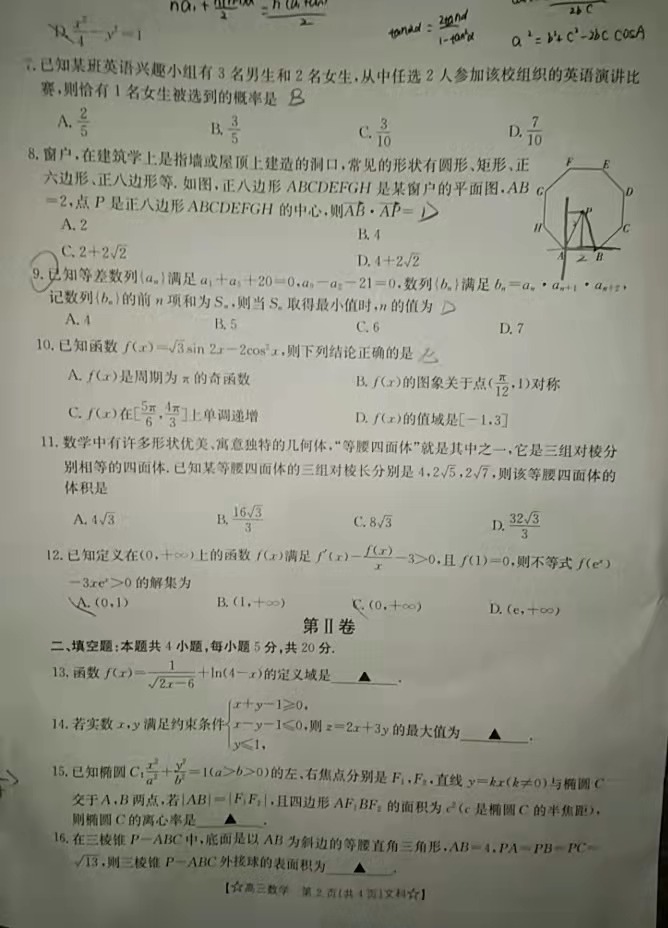 D. x²/4 - y² = 1
tan2α = 2tanα/1-tan²α
a² = b²+c²-2bc cosA
7. 已知某班英语兴趣小组有 3 名男生和 2 名女生,从中任选 2 人参加该校组织的英语演讲比
赛,则恰有 1 名女生被选到的概率是 B
A. 2/5 B. 3/5 C. 3/10 D. 7/10
8. 窗户,在建筑学上是指墙或屋顶上建造的洞口,常见的形状有圆形、矩形、正
六边形、正八边形等. 如图,正八边形 ABCDEFGH 是某窗户的平面图,AB
=2,点 P 是正八边形 ABCDEFGH 的中心,则AB·AP= D
A. 2 B. 4
C. 2+2√2 D. 4+2√2
F E
G D
P
H C
A 2 B
9. 已知等差数列{aₙ}满足
记数列{bₙ}的前 n 项和为 Sₙ,则当 Sₙ 取得最小值时,n 的值为 D
A. 4 B. 5 C. 6 D. 7
10. 已知函数 f(x)=√3sin 2x-2cos²x,则下列结论正确的是
A. f(x)是周期为 π 的奇函数 B. f(x)的图象关于点(π/12,1)对称
C. f(x)在[5π/6,4π/3]上单调递增 D. f(x)的值域是[-1,3]
11. 数学中有许多形状优美、寓意独特的几何体,“等腰四面体”就是其中之一,它是三组对棱分
别相等的四面体. 已知某等腰四面体的三组对棱长分别是 4,2√5,2√7,则该等腰四面体的
体积是
A. 4√3 B. 16√3/3 C. 8√3 D. 32√3/3
12. 已知定义在(0,+∞)上的函数 f(x)满足 f′(x)-f(x)/x-3>0,且 f(1)=0,则不等式 f(eˣ)
-3xeˣ>0 的解集为
A. (0,1) B. (1,+∞) C. (0,+∞) D. (e,+∞)
第Ⅱ卷
二、填空题:本题共 4 小题,每小题 5 分,共 20 分.
13. 函数 f(x)=1/√2x-6+ln(4-x)的定义域是 ▲ .
14. 若实数 x,y 满足约束条件{x+y-1≥0, x-y-1≤0, y≤1, 则 z=2x+3y 的最大值为 ▲ .
15. 已知椭圆 C:x²/a²+y²/b²=1(a>b>0)的左、右焦点分别是 F₁,F₂,直线 y=kx(k≠0)与椭圆 C
交于 A,B 两点,若|AB|=|F₁F₂|,且四边形 AF₁BF₂ 的面积为 c²(c 是椭圆 C 的半焦距),
则椭圆 C 的离心率是 ▲ .
16. 在三棱锥 P-ABC 中,底面是以 AB 为斜边的等腰直角三角形,AB=4,PA=PB=PC=
√13,则三棱锥 P-ABC 外接球的表面积为 ▲ .
【☆高三数学 第 2 页(共 4 页)文科☆】